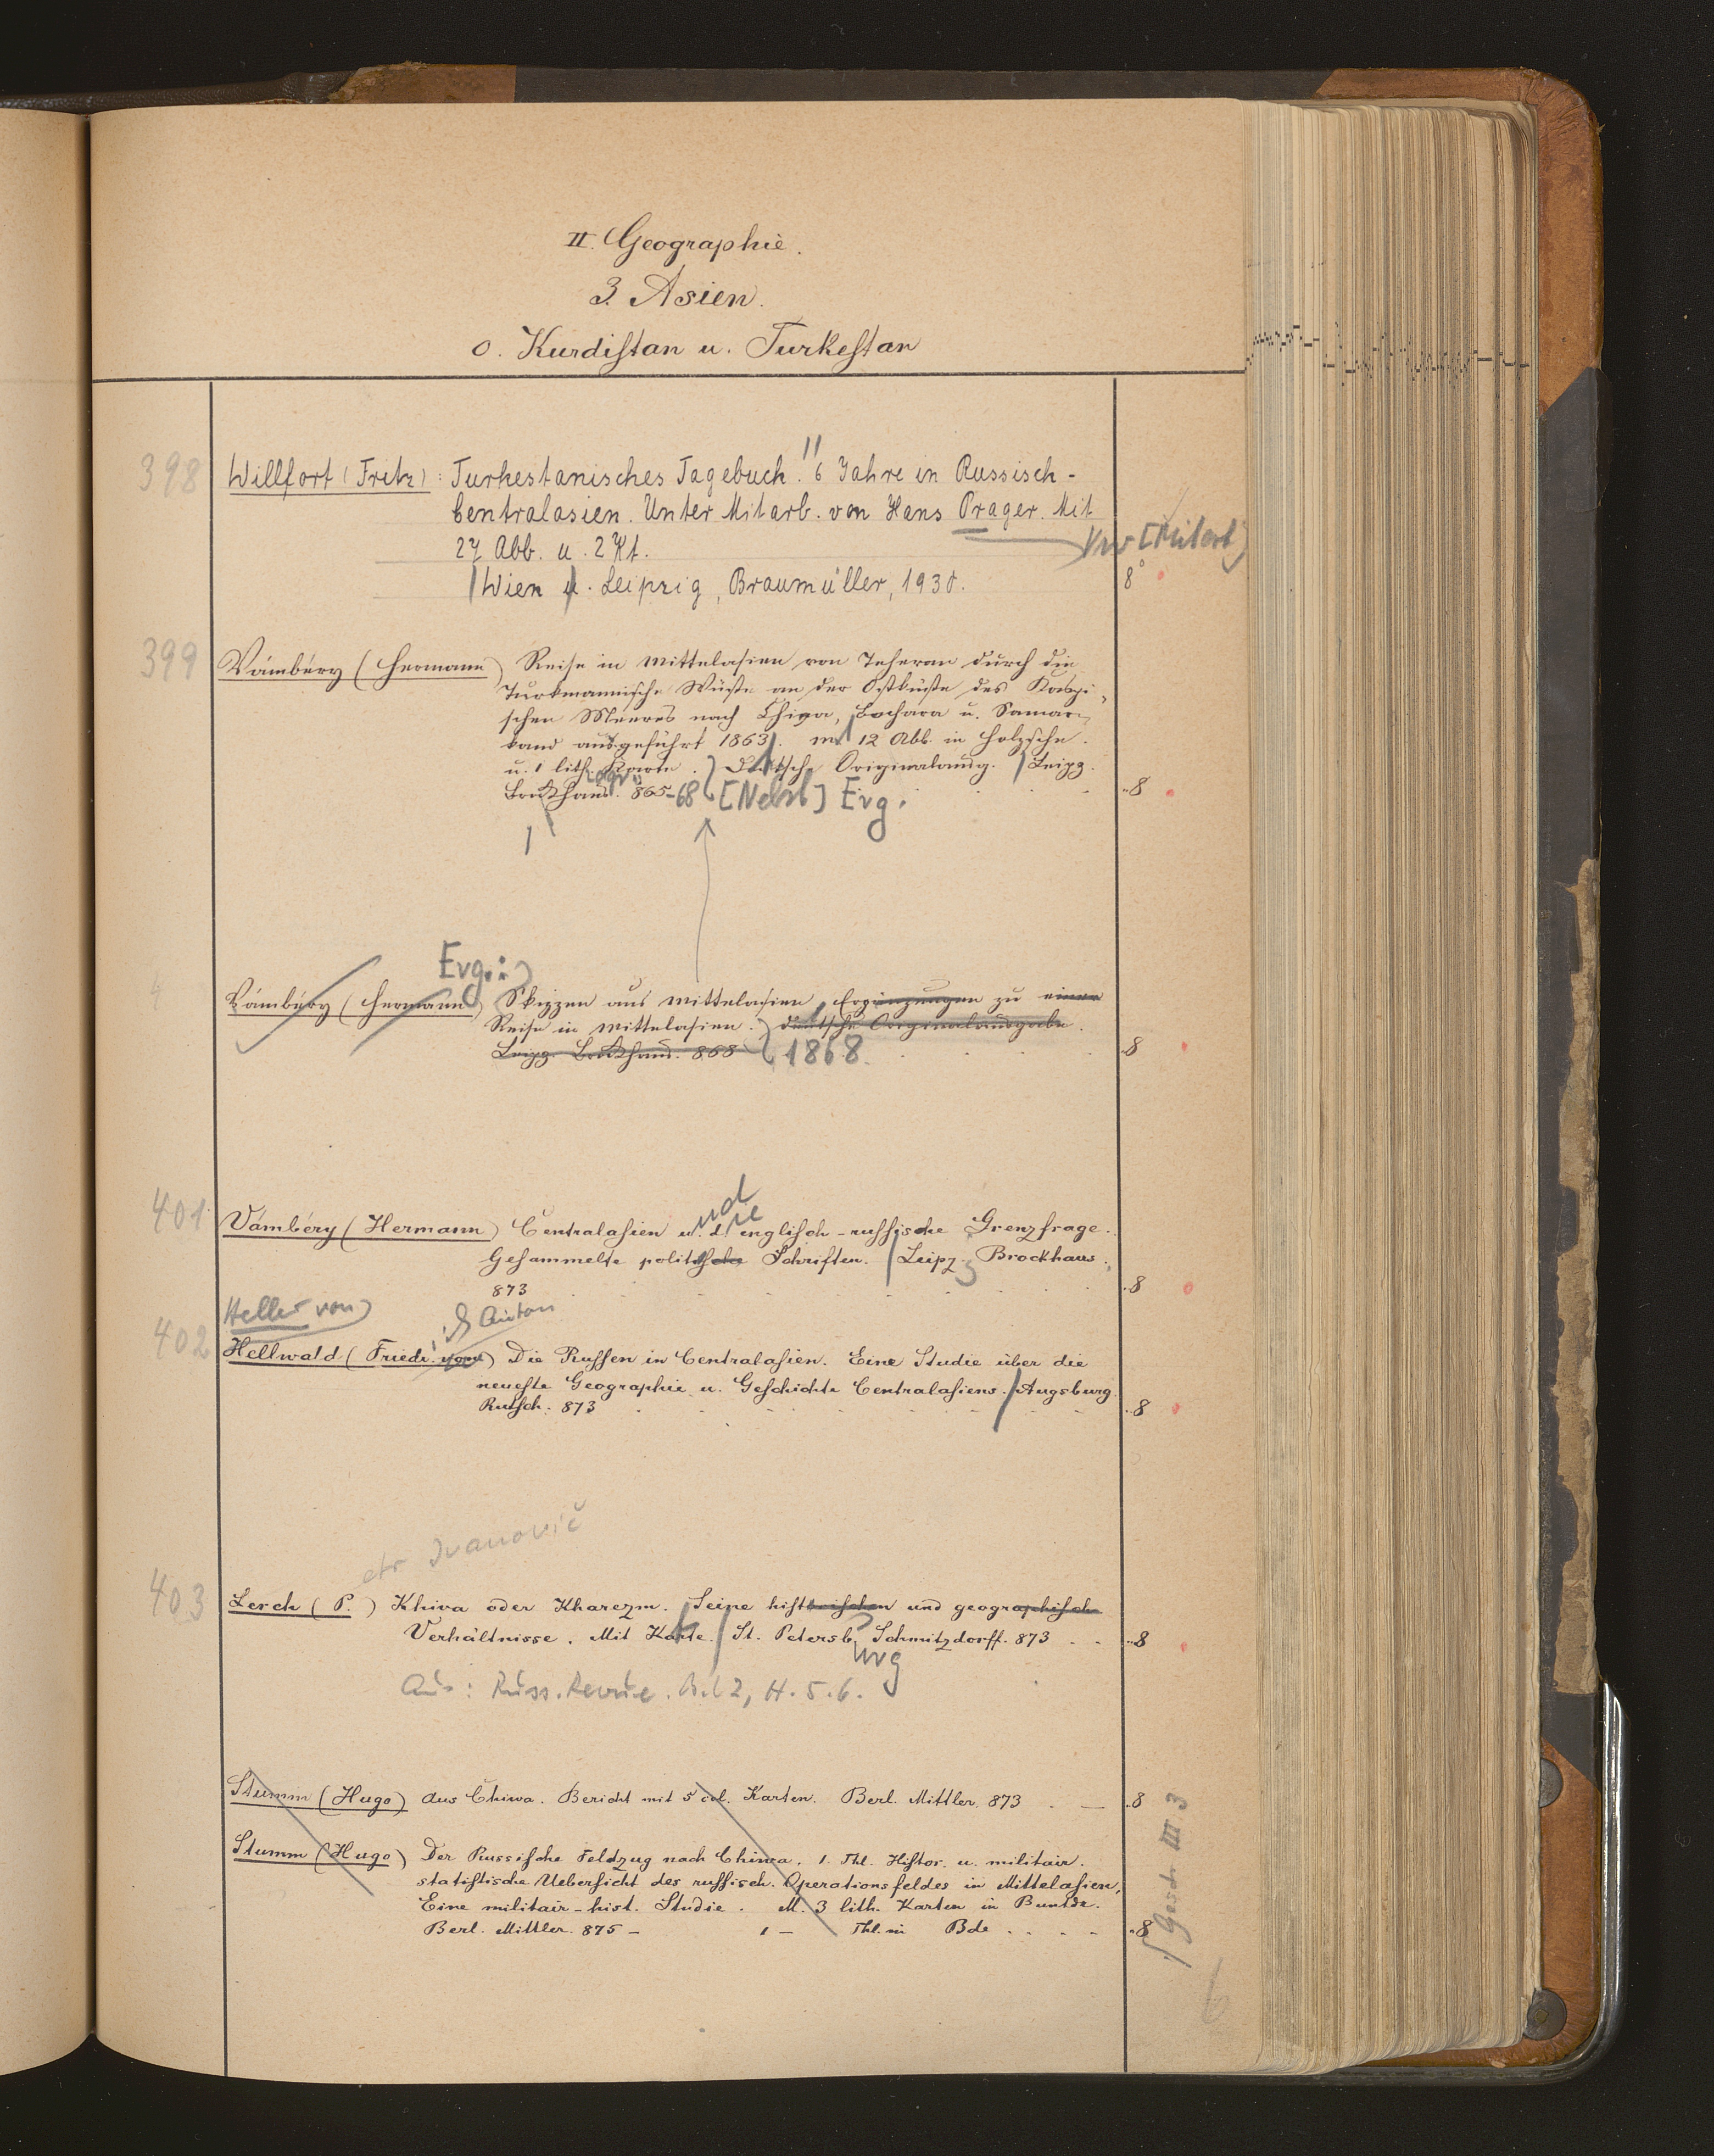 II. Geographie.
3. Asien.
o. Kurdistan u. Turkestan
398 Willfort (Fritz): Turkestanisches Tagebuch. 6 Jahre in Russisch-
Centralasien. Unter Mitarb. von Hans Prager. Mit
27 Abb. u. 2 Kt.
Vw [Mitarb]
Wien u. Leipzig, Braumüller, 1930. 8°
399 Vámbéry (Hermann) Reise in Mittelasien von Teheran durch die
Turkmanische Wüste an der Ostküste des Kaspi-
schen Meeres nach Chiva, Bochara u. Samar-
kand ausgeführt 1863. mit 12 Abb. in Holzschn.
u. 1 lith. Karte. Deutsche Originalausg. Leipz.
Brockhaus. 865-68 [Nebst] Erg. 8
Erg.:
4 Vámbéry (Hermann) Skizzen aus Mittelasien. Ergänzungen zu einer
Reise in Mittelasien. deutsche Originalausgabe.
Leipz. Brockhaus. 868 1868. 8
und die
401 Vámbéry (Hermann) Centralasien u. d. englisch-russische Grenzfrage.
Gesammelte politische Schriften. Leipz. Brockhaus.
873 8
Heller von
Anton
402 Hellwald (Friedr. von) Die Russen in Centralasien. Eine Studie über die
neueste Geographie u. Geschichte Centralasiens. Augsburg.
Butsch. 873 8
etr Ivanovič
403 Lerch (P.) Khiva oder Kharezm. Seine historischen und geographisch
Verhältnisse. Mit Karte. St. Petersb. Schmitzdorff. 873 8
urg
Aus: Russ. Revue. Bd 2, H. 5. 6.
Stumm (Hugo) Aus Chiwa. Bericht mit 5 col. Karten. Berl. Mittler. 873 8
Stumm (Hugo) Der Russische Feldzug nach Chiwa. 1. Thl. Histor. u. militair.
statistische Uebersicht des russisch. Operationsfeldes in Mittelasien.
Eine militair-hist. Studie. M. 3 lith. Karten in Buntdr.
Berl. Mittler. 875 - 1 - Thl. in Bde 8
Gesch III 3